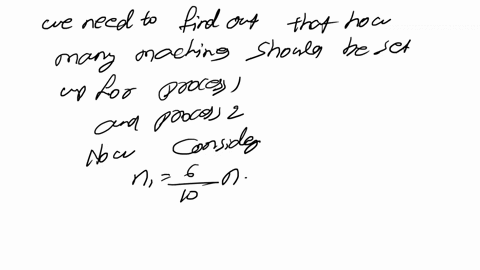 we need to find out that how
many machins should be set
up for process 1
and process 2
Now Consider
n₁ = 6/10 n.